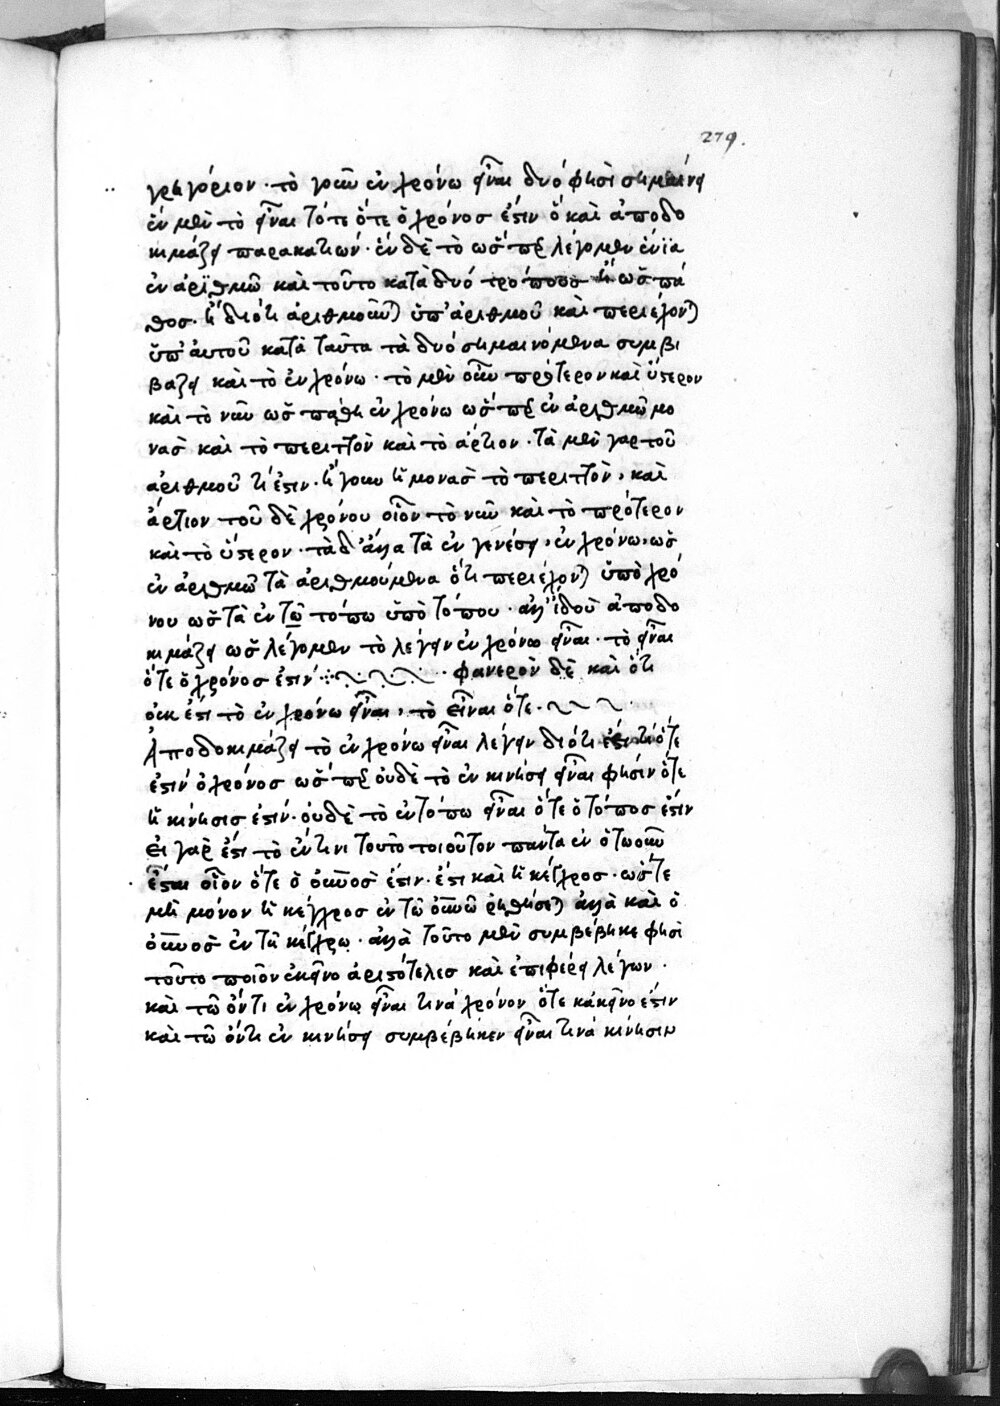 279.
γρηγόριον· τὸ γοῦν ἐν χρόνω εἶναι δύο φησὶ σημαίνει
ἓν μὲν τὸ εἶναι τότε ὅτε ὁ χρόνος ἐστιν ὃ καὶ ἀποδο
κιμάζει παρακατιών· ἓν δὲ τὸ ὥσπερ λέγομεν ἔνϊα
ἐν ἀριθμῶ καὶ τοῦτο κατὰ δύο τρόπους ἢ ὡς πά
θος· ἢ διότι ἀριθμοῦνται ὑπ' ἀριθμοῦ καὶ περιέχονται
ὑπ' αὐτοῦ κατὰ ταῦτα τὰ δύο σημαινόμενα συμβι
βάζει καὶ τὸ ἐν χρόνω· τὸ μὲν οὖν πρότερον καὶ ὕστερον
καὶ τὸ νῦν ὡς πάθη ἐν χρόνω ὥσπερ ἐν ἀριθμῶ μο
νὰς καὶ τὸ περιττὸν καὶ τὸ ἄρτιον· τὰ μὲν γαρ τοῦ
ἀριθμοῦ τί ἐστιν· ἤγουν ἡ μονὰς τὸ περιττὸν, καὶ
ἄρτιον τοῦ δὲ χρόνου οἷον τὸ νῦν καὶ τὸ πρότερον
καὶ τὸ ὕστερον· τὰ δ' ἄλλα τὰ ἐν γενέσει, ἐν χρόνω, ὡς
ἐν ἀριθμῶ τὰ ἀριθμούμενα ὅτι περιέχονται ὑπὸ χρό
νου ὡς τὰ ἐν τῶ τόπω ὑπὸ τόπου· ἀλλ' ἰδοὺ ἀποδο
κιμάζει ὡς λέγομεν τὸ λέγειν ἐν χρόνω εἶναι· τὸ εἶναι
ὅτε ὁ χρόνος ἐστίν· φανερὸν δὲ καὶ ὅτι
οὐκ ἔστι τὸ ἐν χρόνω εἶναι, τὸ εἶναι ὅτε·
Ἀποδοκιμάζει τὸ ἐν χρόνω εἶναι λέγειν διότι ὅτε
ἐστίν ὁ χρόνος ὥσπερ οὐδὲ τὸ ἐν κινήσει εἶναι φησὶν ὅτε
ἡ κίνησις ἐστίν· οὐδὲ τὸ ἐν τόπω εἶναι ὅτε ὁ τόπος ἐστιν
εἰ γὰρ ἔστι τὸ ἔν τινι τοῦτο τοιοῦτον πάντα ἐν ὁτωοῦν
ἔσται οἷον ὅτε ὁ οὐνος ἐστιν· ἔστι καὶ ἡ κέγχρος· ὥστε
μὴ μόνον ἡ κέγχρος ἐν τῶ οὐνῶ ῥηθήσεται ἀλλὰ καὶ ὁ
οὐνος ἐν τῆ κέγχρω· ἀλλὰ τοῦτο μὲν συμβέβηκε φησὶ
τοῦτο ποιὸν ἐκεῖνο ἀριστότελες καὶ ἐπιφέρει λέγων·
καὶ τῶ ὄντι ἐν χρόνω εἶναι τινὰ χρόνον ὅτε κἀκεῖνο ἐστιν
καὶ τῶ ὄντι ἐν κινήσει συμβέβηκεν εἶναι τινὰ κίνησιν